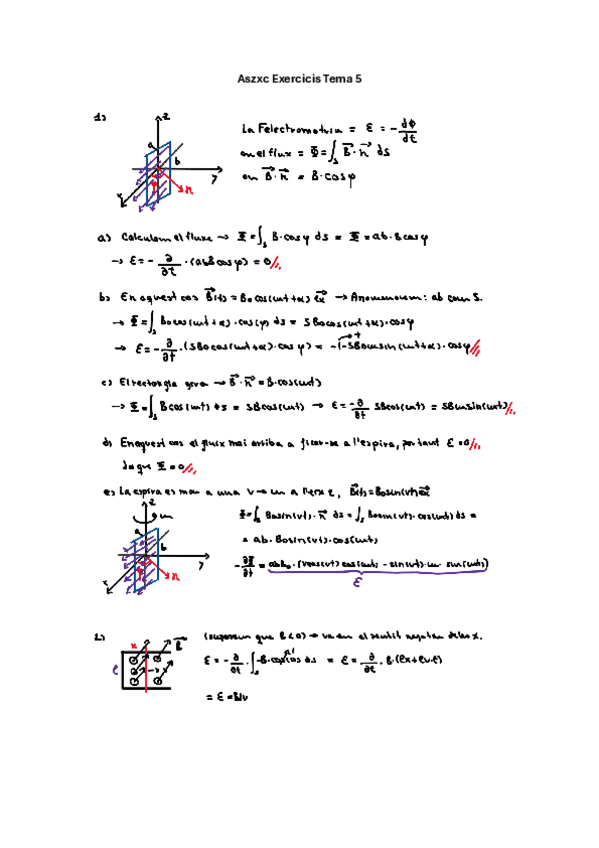 Aszxc Exercicis Tema 5
1)
z
a
b
x
y
n
La F electromotriu = ε = - dΦ/dt
on el flux = Φ = ∫s B⃗·n⃗ ds
on B⃗·n⃗ = B·cosφ
a) Calculem el fluxe → Φ = ∫s B·cosφ ds = Φ = ab·Bcosφ
→ ε = - ∂/∂t ·(abBcosφ) = 0
b) En aquest cas B⃗(t) = B₀cos(ωt+α) e⃗x → Anomenem: ab com S.
→ Φ = ∫s B₀cos(ωt+α)·cos(φ) ds = SB₀cos(ωt+α)·cosφ
→ ε = - ∂/∂t ·(SB₀cos(ωt+α)·cosφ) = -(-SB₀ωsin(ωt+α)·cosφ
+
c) El rectangle gira → B⃗·n⃗ = B·cos(ωt)
→ Φ = ∫s Bcos(ωt) ds = SBcos(ωt) → ε = - ∂/∂t SBcos(ωt) = SBωsin(ωt)
d) En aquest cas el fluix mai arriba a ficar-se a l'espira, per tant ε = 0
Ja que Φ = 0
e) La espira es mou a una v → ω a l'eix z, B⃗(t) = B₀sin(νt) e⃗x
z
ω
a
b
x
y
n
Φ = ∫s B₀sin(νt)·n⃗ ds = ∫s B₀sin(νt)·cos(ωt) ds =
= ab·B₀sin(νt)·cos(ωt)
- ∂Φ/∂t = abB₀·(νcos(νt) cos(ωt) - sin(νt)·ω·sin(ωt))
ε
2)
x
B⃗
ℓ
→ v
(suposem que B<0) → va en el sentit negatiu de les x.
ε = - ∂/∂t · ∫s -B·cos(0) ds = ε = ∂/∂t · B·(ℓx+ℓv·t)
= ε = Bℓv